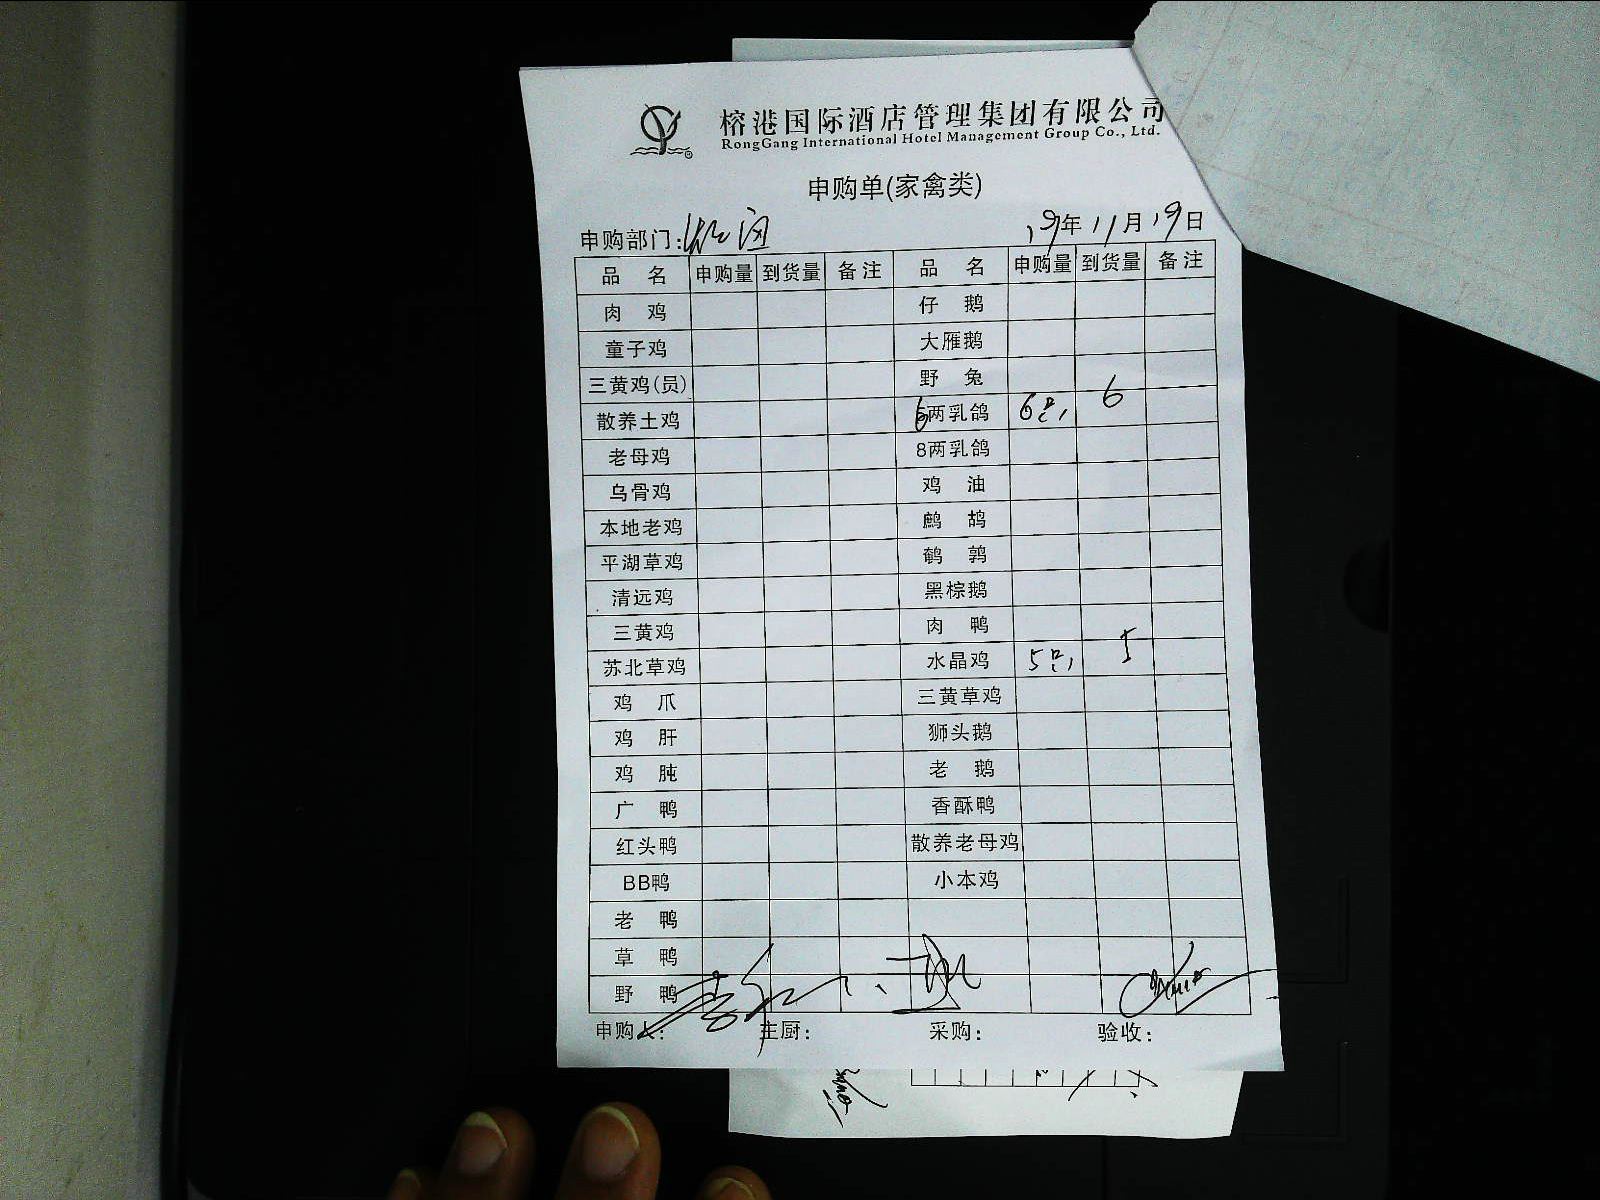 榕港国际酒店管理集团有限公司
RongGang International Hotel Management Group Co., Ltd.
申购单(家禽类)
申购部门: 19年11月19日
品 名 申购量 到货量 备注 品 名 申购量 到货量 备注
肉 鸡 仔 鹅
童子鸡 大雁鹅
三黄鸡(员) 野 兔
散养土鸡 6两乳鸽 6只 6
老母鸡 8两乳鸽
乌骨鸡 鸡 油
本地老鸡 鹧 鸪
平湖草鸡 鹌 鹑
清远鸡 黑棕鹅
三黄鸡 肉 鸭
苏北草鸡 水晶鸡 5只 5
鸡 爪 三黄草鸡
鸡 肝 狮头鹅
鸡 肫 老 鹅
广 鸭 香酥鸭
红头鸭 散养老母鸡
BB鸭 小本鸡
老 鸭
草 鸭
野 鸭
申购人: 主厨: 采购: 验收: